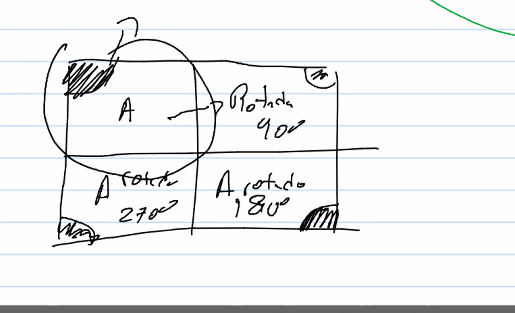 A
Rotada
90°
A rotada
270°
A rotado
180°